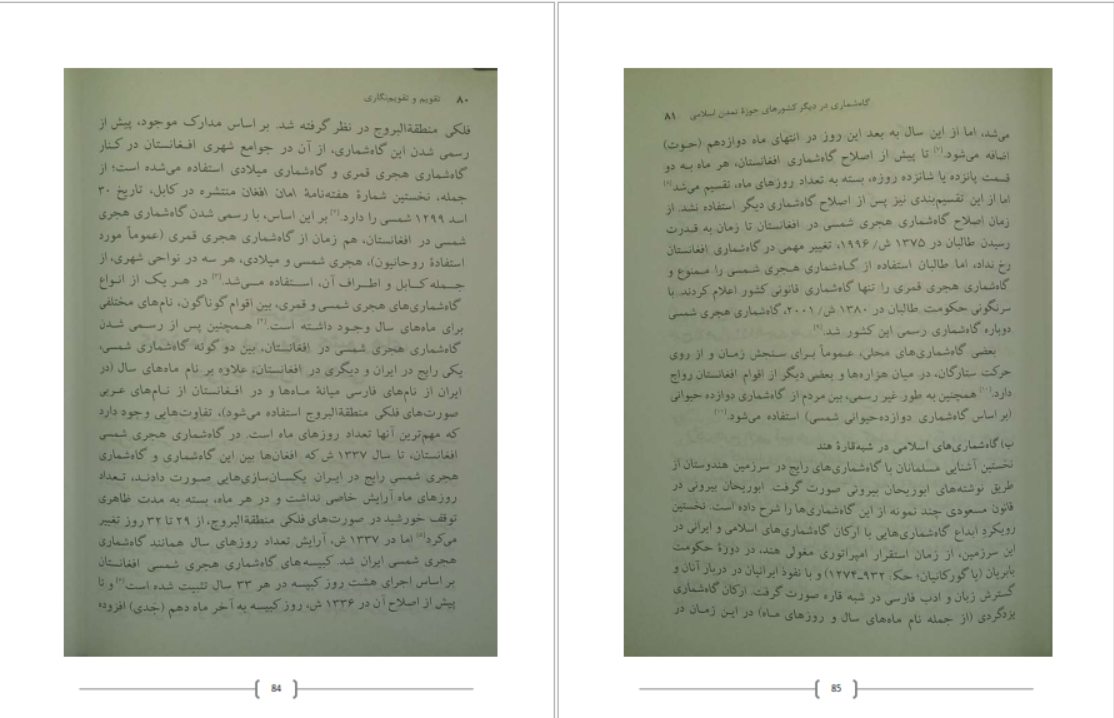 ۸۰ تقویم و تقویم‌نگاری
فلکی منطقةالبروج در نظر گرفته شد. بر اساس مدارک موجود، پیش از
رسمی شدن این گاه‌شماری، از آن در جوامع شهری افغانستان در کنار
گاه‌شماری هجری قمری و گاه‌شماری میلادی استفاده می‌شده است؛ از
جمله، نخستین شمارهٔ هفته‌نامهٔ امان افغان منتشره در کابل، تاریخ ۳۰
اسد ۱۲۹۹ شمسی را دارد.(۲) بر این اساس، با رسمی شدن گاه‌شماری هجری
شمسی در افغانستان، هم زمان از گاه‌شماری هجری قمری (عموماً مورد
استفادهٔ روحانیون)، هجری شمسی و میلادی، هر سه در نواحی شهری، از
جمله کابل و اطراف آن، استفاده می‌شد.(۳) در هر یک از انواع
گاه‌شماری‌های هجری شمسی و قمری، بین اقوام گوناگون، نام‌های مختلفی
برای ماه‌های سال وجود داشته است.(۴) همچنین پس از رسمی شدن
گاه‌شماری هجری شمسی در افغانستان، بین دو گونه گاه‌شماری شمسی،
یکی رایج در ایران و دیگری در افغانستان، علاوه بر نام ماه‌های سال (در
ایران از نام‌های فارسی میانهٔ ماه‌ها و در افغانستان از نام‌های عربی
صورت‌های فلکی منطقةالبروج استفاده می‌شود)، تفاوت‌هایی وجود دارد
که مهم‌ترین آنها تعداد روزهای ماه است. در گاه‌شماری هجری شمسی
افغانستان، تا سال ۱۳۳۷ ش که افغان‌ها بین این گاه‌شماری و گاه‌شماری
هجری شمسی رایج در ایران یکسان‌سازی‌هایی صورت دادند، تعداد
روزهای ماه آرایش خاصی نداشت و در هر ماه، بسته به مدت ظاهری
توقف خورشید در صورت‌های فلکی منطقةالبروج، از ۲۹ تا ۳۲ روز تغییر
می‌کرد(۵) اما در ۱۳۳۷ ش، آرایش تعداد روزهای سال همانند گاه‌شماری
هجری شمسی ایران شد. کبیسه‌های گاه‌شماری هجری شمسی افغانستان
بر اساس اجرای هشت روز کبیسه در هر ۳۳ سال تثبیت شده است(۶) و تا
پیش از اصلاح آن در ۱۳۳۶ ش، روز کبیسه به آخر ماه دهم (جَدی) افزوده
84
گاه‌شماری در دیگر کشورهای حوزهٔ تمدن اسلامی ۸۱
می‌شد، اما از این سال به بعد این روز در انتهای ماه دوازدهم (حوت)
اضافه می‌شود.(۷) تا پیش از اصلاح گاه‌شماری افغانستان، هر ماه به دو
قسمت پانزده یا شانزده روزه، بسته به تعداد روزهای ماه، تقسیم می‌شد(۸)
اما از این تقسیم‌بندی نیز پس از اصلاح گاه‌شماری دیگر استفاده نشد. از
زمان اصلاح گاه‌شماری هجری شمسی در افغانستان تا زمان به قدرت
رسیدن طالبان در ۱۳۷۵ ش/ ۱۹۹۶، تغییر مهمی در گاه‌شماری افغانستان
رخ نداد، اما طالبان استفاده از گاه‌شماری هجری شمسی را ممنوع و
گاه‌شماری هجری قمری را تنها گاه‌شماری قانونی کشور اعلام کردند. با
سرنگونی حکومت طالبان در ۱۳۸۰ ش/ ۲۰۰۱، گاه‌شماری هجری شمسی
دوباره گاه‌شماری رسمی این کشور شد.(۹)
بعضی گاه‌شماری‌های محلی، عموماً برای سنجش زمان و از روی
حرکت ستارگان، در میان هزاره‌ها و بعضی دیگر از اقوام افغانستان رواج
دارد.(۱۰) همچنین به طور غیر رسمی، بین مردم از گاه‌شماری دوازده حیوانی
(بر اساس گاه‌شماری دوازده‌حیوانی شمسی) استفاده می‌شود.(۱۱)
ب) گاه‌شماری‌های اسلامی در شبه‌قارهٔ هند
نخستین آشنایی مسلمانان با گاه‌شماری‌های رایج در سرزمین هندوستان از
طریق نوشته‌های ابوریحان بیرونی صورت گرفت. ابوریحان بیرونی در
قانون مسعودی چند نمونه از این گاه‌شماری‌ها را شرح داده است. نخستین
رویکرد ابداع گاه‌شماری‌هایی با ارکان گاه‌شماری‌های اسلامی و ایرانی در
این سرزمین، از زمان استقرار امپراتوری مغولی هند، در دورهٔ حکومت
بابریان (یا گورکانیان؛ حک‍: ۹۳۲-۱۲۷۴) و با نفوذ ایرانیان در دربار آنان و
گسترش زبان و ادب فارسی در شبه قاره صورت گرفت. ارکان گاه‌شماری
یزدگردی (از جمله نام ماه‌های سال و روزهای ماه) در این زمان در
85